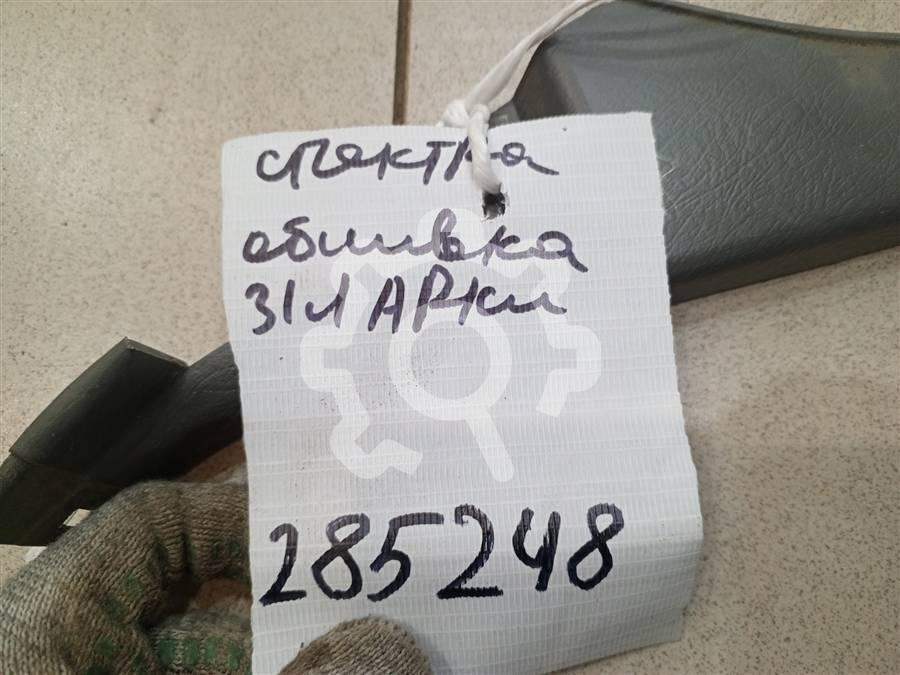 спектра
обшивка
З/Л АРки
285248